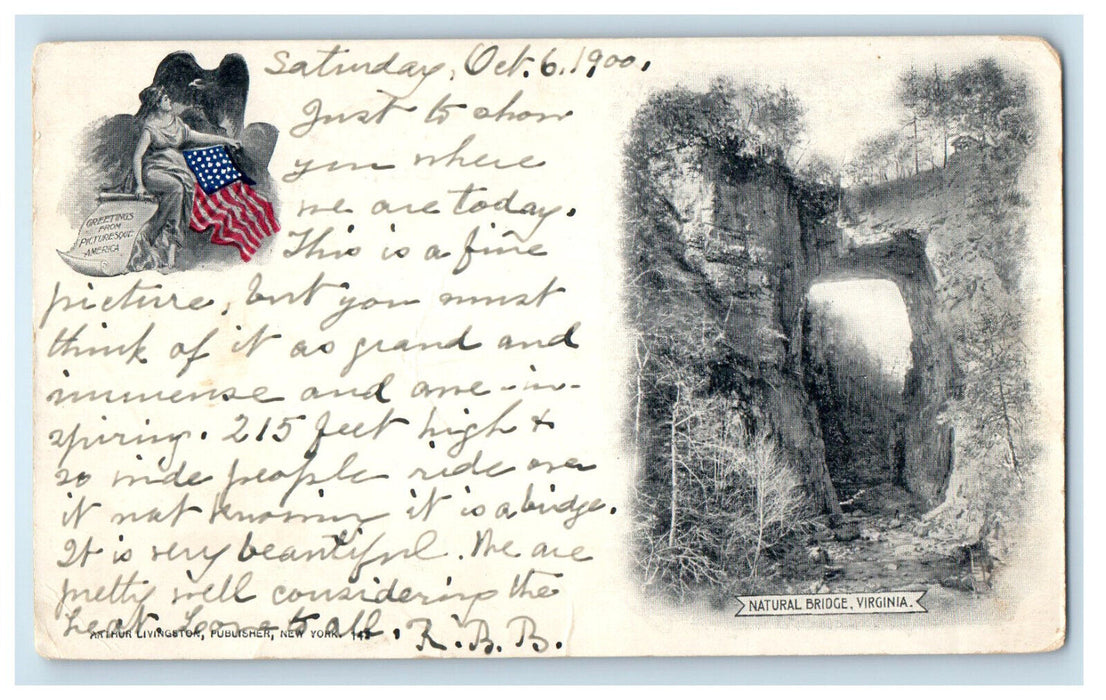 Saturday, Oct. 6, 1900.
Just to show
you where
we are today.
This is a fine
picture, but you must
think of it as grand and
immense and awe-in-
spiring. 215 feet high +
so wide people ride over
it not knowing it is a bridge.
It is very beautiful. We are
pretty well considering the
heat. Love to all. R. B. B.
GREETINGS
FROM
PICTURESQUE
AMERICA
ARTHUR LIVINGSTON, PUBLISHER, NEW YORK.
NATURAL BRIDGE, VIRGINIA.